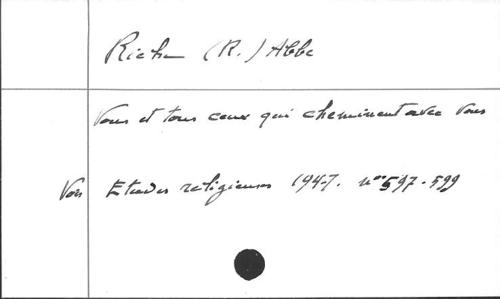 (R.) Abbé
Vous et tous ceux qui cheminent avec vous
Voir Etudes religieuses 1947. nos 597-599